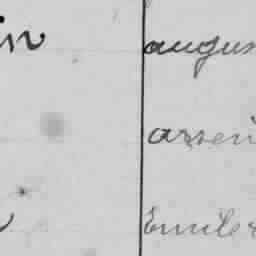 in augus
arsen
Emile